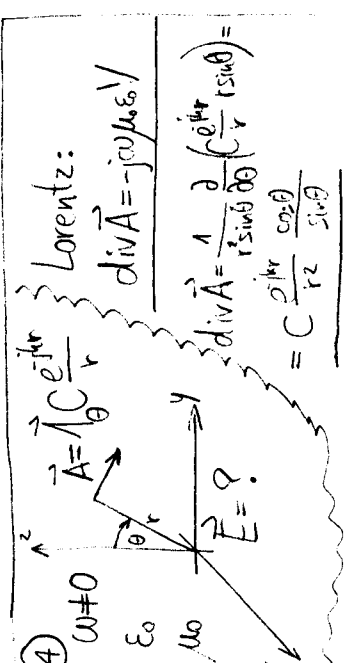 4
ω≠0
ε₀
μ₀
z
θ
r
y
A⃗=1⃗_θ C e^{-jkr}/r
E⃗=?
Lorentz:
div A⃗=-jωμ₀ε₀V
div A⃗ = 1/(r² sinθ) ∂/∂θ (C e^{-jkr}/r r sinθ)=
= C e^{-jkr}/r² cosθ/sinθ